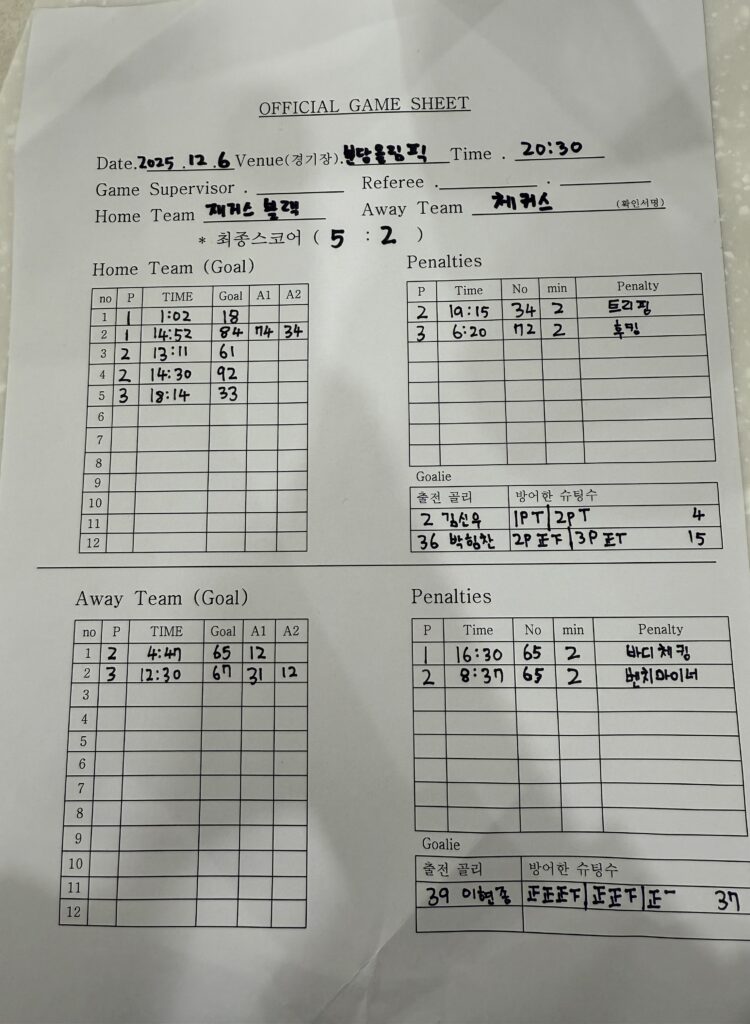 OFFICIAL GAME SHEET
Date. 2025 .12 .6 Venue(경기장). 분당올림픽 Time . 20:30
Game Supervisor . Referee . .
Home Team 재거스 블랙 Away Team 체커스 (확인서명)
* 최종스코어 ( 5 : 2 )
Home Team (Goal)
no P TIME Goal A1 A2
1 1 1:02 18
2 1 14:52 84 74 34
3 2 13:11 61
4 2 14:30 92
5 3 18:14 33
6
7
8
9
10
11
12
Penalties
P Time No min Penalty
2 19:15 34 2 트리핑
3 6:20 72 2 후킹
Goalie
출전 골리 방어한 슈팅수
2 김신우 1P T 2P T 4
36 박힘찬 2P 正下 3P 正T 15
Away Team (Goal)
no P TIME Goal A1 A2
1 2 4:47 65 12
2 3 12:30 67 31 12
3
4
5
6
7
8
9
10
11
12
Penalties
P Time No min Penalty
1 16:30 65 2 바디체킹
2 8:37 65 2 벤치마이너
Goalie
출전 골리 방어한 슈팅수
39 이현종 正正正下 正正下 正一 37